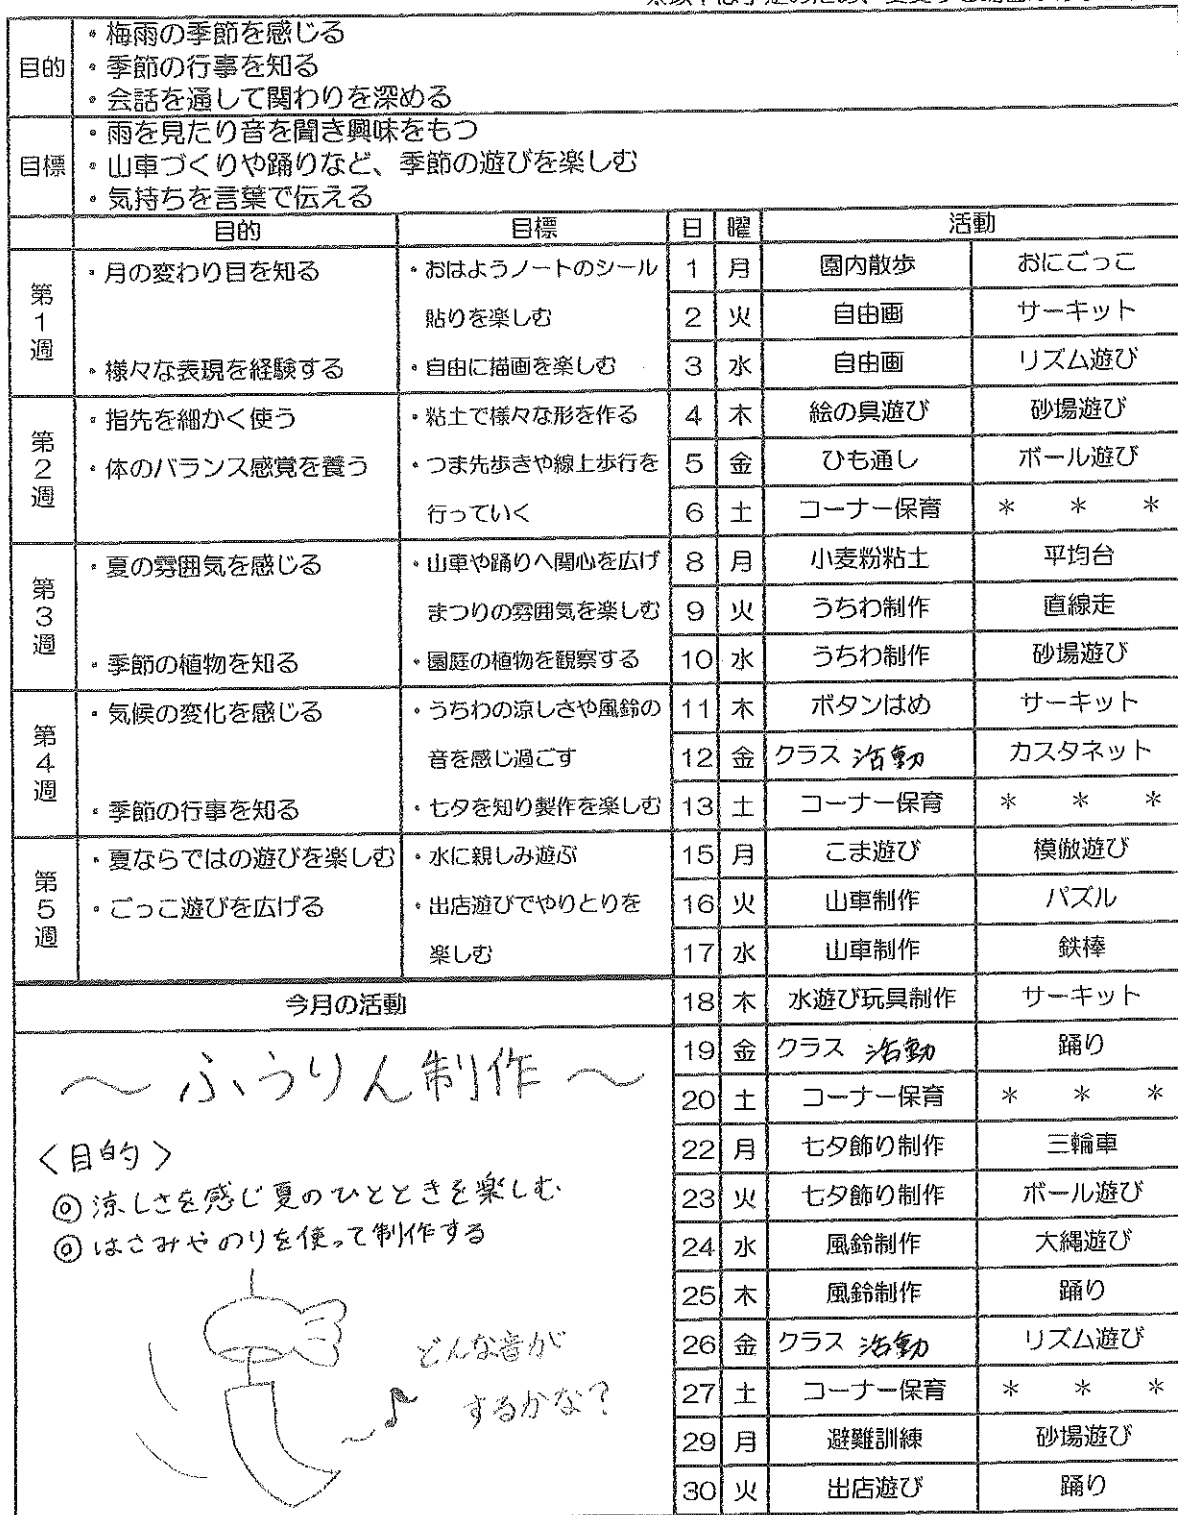 目的
・梅雨の季節を感じる
・季節の行事を知る
・会話を通して関わりを深める
目標
・雨を見たり音を聞き興味をもつ
・山車づくりや踊りなど、季節の遊びを楽しむ
・気持ちを言葉で伝える
目的 目標 日 曜 活動
第1週
・月の変わり目を知る
・様々な表現を経験する
・おはようノートのシール
貼りを楽しむ
・自由に描画を楽しむ
第2週
・指先を細かく使う
・体のバランス感覚を養う
・粘土で様々な形を作る
・つま先歩きや線上歩行を
行っていく
第3週
・夏の雰囲気を感じる
・季節の植物を知る
・山車や踊りへ関心を広げ
まつりの雰囲気を楽しむ
・園庭の植物を観察する
第4週
・気候の変化を感じる
・季節の行事を知る
・うちわの涼しさや風鈴の
音を感じ過ごす
・七夕を知り製作を楽しむ
第5週
・夏ならではの遊びを楽しむ
・ごっこ遊びを広げる
・水に親しみ遊ぶ
・出店遊びでやりとりを
楽しむ
1 月 園内散歩 おにごっこ
2 火 自由画 サーキット
3 水 自由画 リズム遊び
4 木 絵の具遊び 砂場遊び
5 金 ひも通し ボール遊び
6 土 コーナー保育 * * *
8 月 小麦粉粘土 平均台
9 火 うちわ制作 直線走
10 水 うちわ制作 砂場遊び
11 木 ボタンはめ サーキット
12 金 クラス活動 カスタネット
13 土 コーナー保育 * * *
15 月 こま遊び 模倣遊び
16 火 山車制作 パズル
17 水 山車制作 鉄棒
18 木 水遊び玩具制作 サーキット
19 金 クラス活動 踊り
20 土 コーナー保育 * * *
22 月 七夕飾り制作 三輪車
23 火 七夕飾り制作 ボール遊び
24 水 風鈴制作 大縄遊び
25 木 風鈴制作 踊り
26 金 クラス活動 リズム遊び
27 土 コーナー保育 * * *
29 月 避難訓練 砂場遊び
30 火 出店遊び 踊り
今月の活動
〜ふうりん制作〜
<目的>
◎涼しさを感じ夏のひとときを楽しむ
◎はさみやのりを使って制作する
どんな音が
するかな?